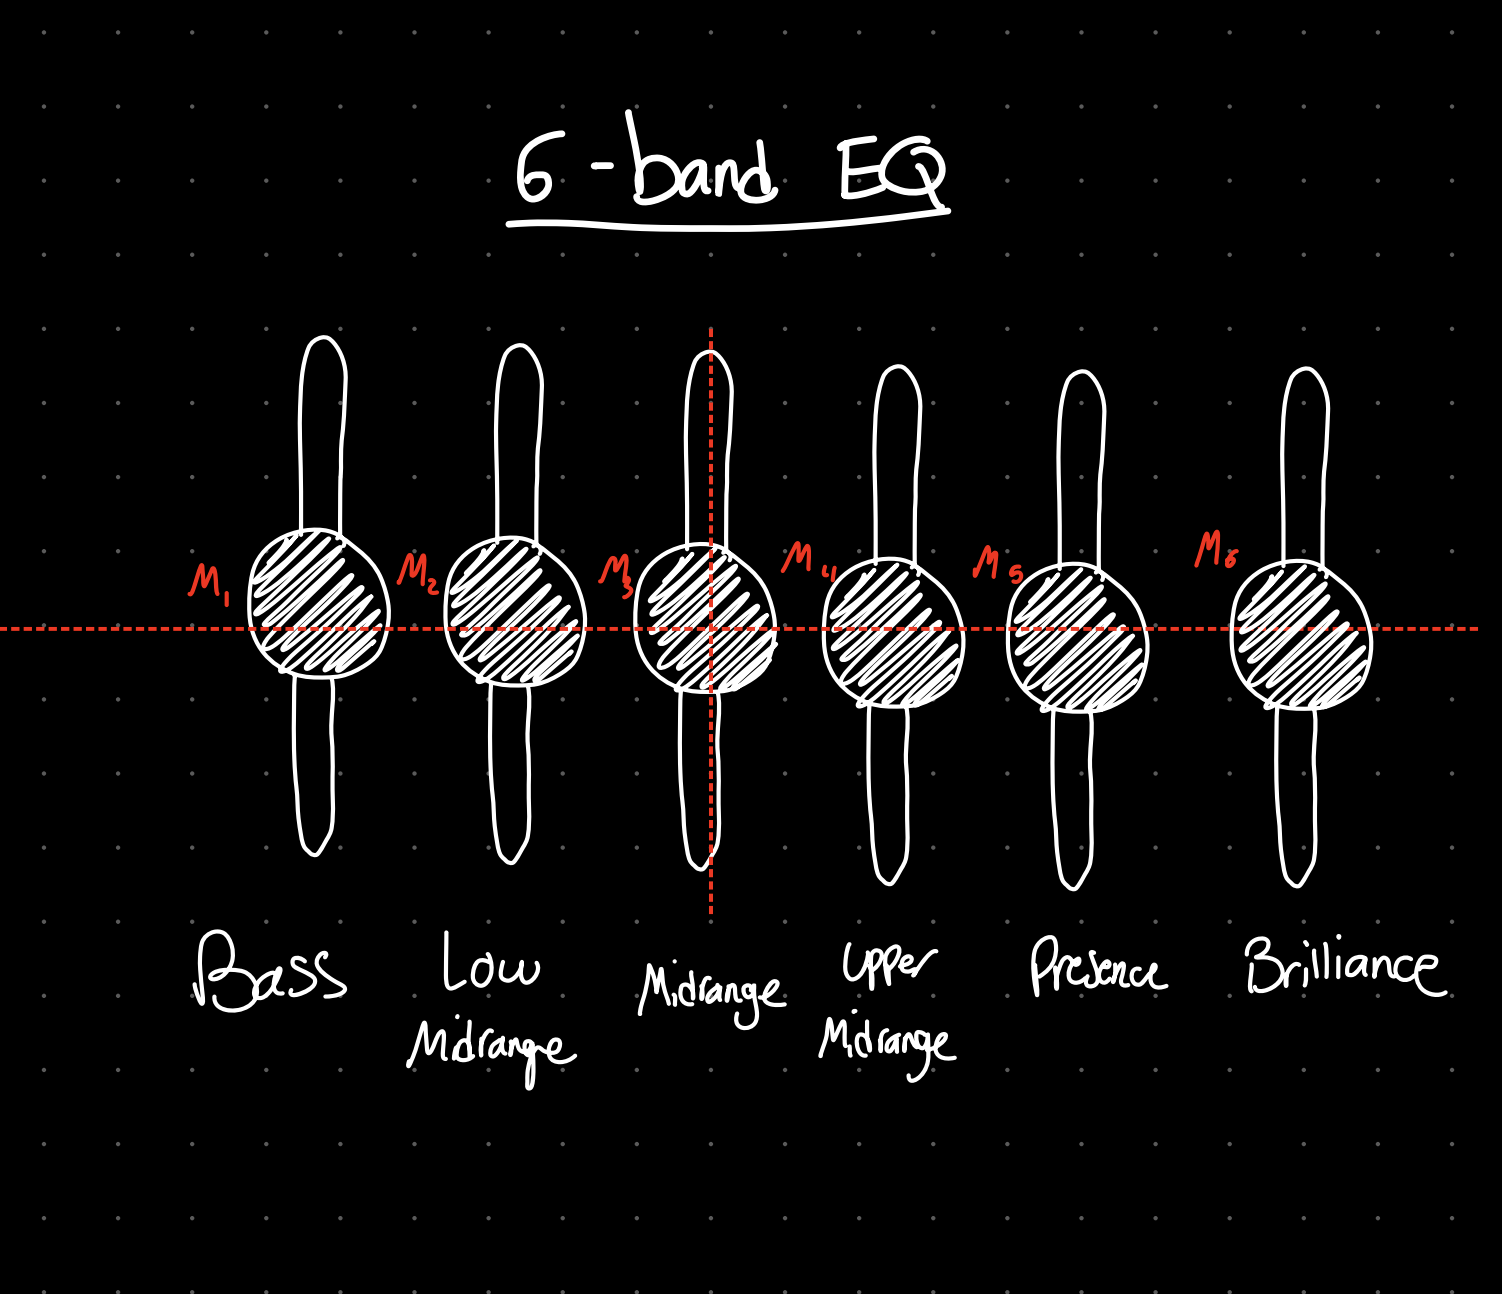 6-band EQ
M1 M2 M3 M4 M5 M6
Bass
Low
Midrange
Midrange
Upper
Midrange
Presence
Brilliance